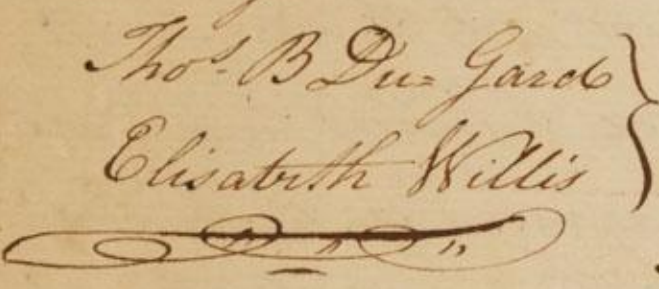 Thos. B Du= Gard
Elisabeth Willis